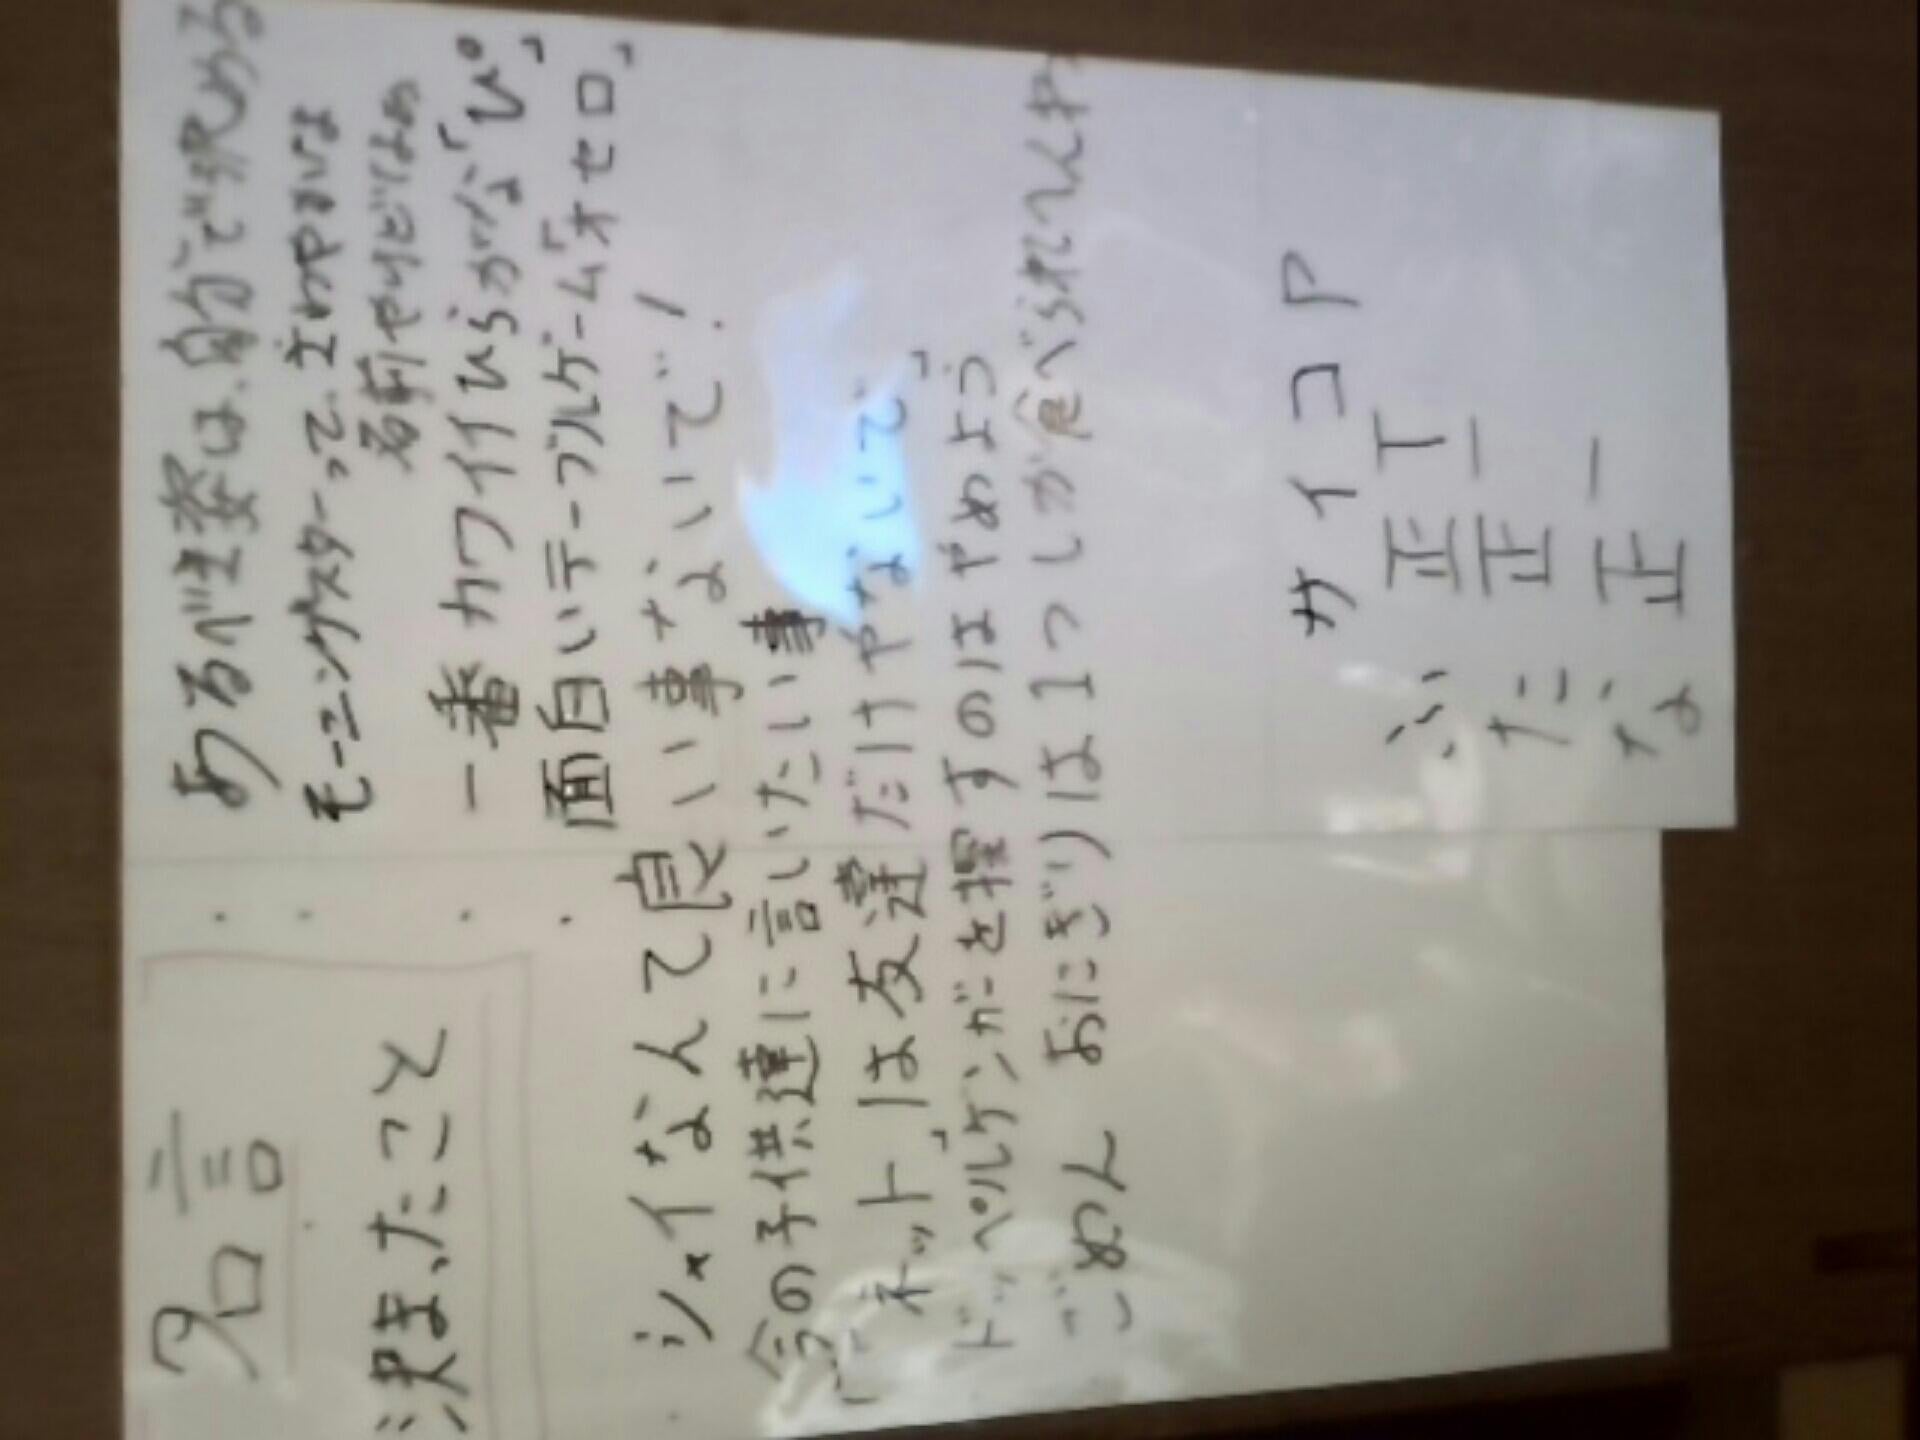 名言
決まったこと
・あるべき姿は、自分で決める
・モーニングスターって、さわやかな
名前やけどなぁ
・一番カワイイひらがな「ぴ」
・面白いテーブルゲーム「オセロ」
シャイなんて良い事ないで!
今の子供達に言いたい事
「「ネット」は友達だけやないで」
ドッペルゲンガーを探すのはやめよう
ごめん おにぎりは1つしか食べられへんわ
サイコア
ふ 正丁
た 正一
な 正一